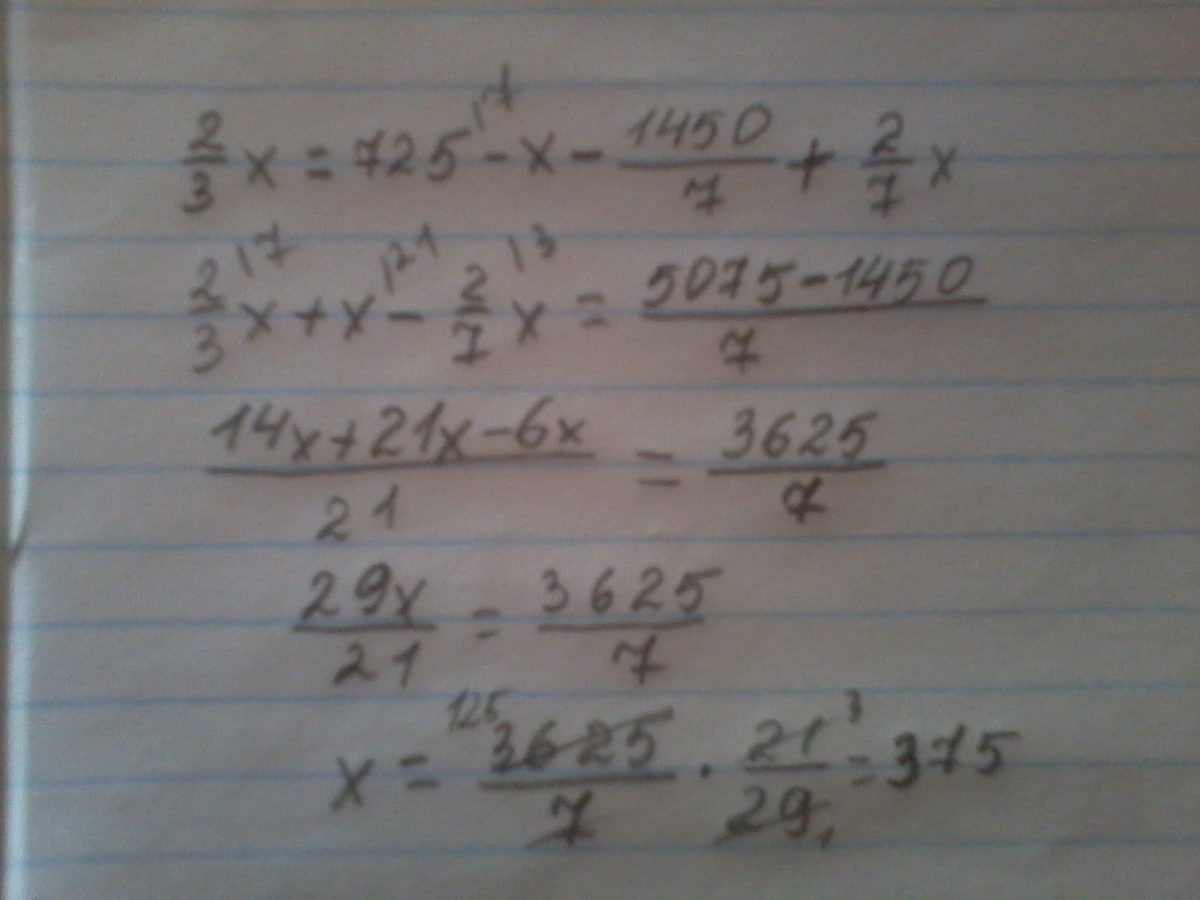 2/3 x = 725 |7 - x - 1450/7 + 2/7 x
2/3 |7 x + x |21 - 2/7 |3 x = (5075-1450)/7
(14x+21x-6x)/21 = 3625/7
29x/21 = 3625/7
x = 125 3625/7 · 21 3/29 1 = 375